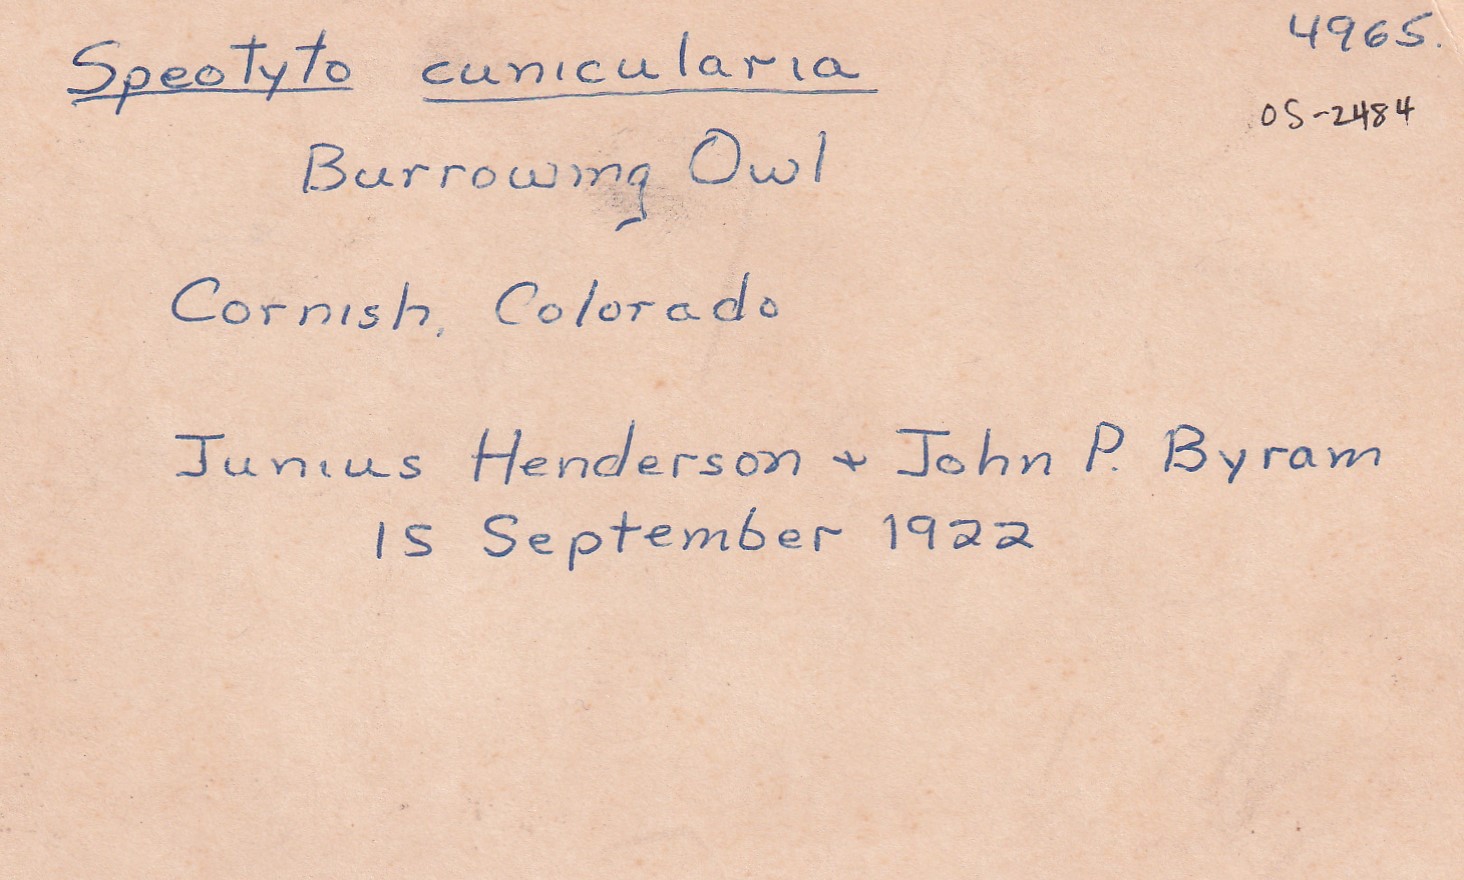 4965.
Speotyto cunicularia
OS-2484
Burrowing Owl
Cornish, Colorado
Junius Henderson + John P. Byram
15 September 1922